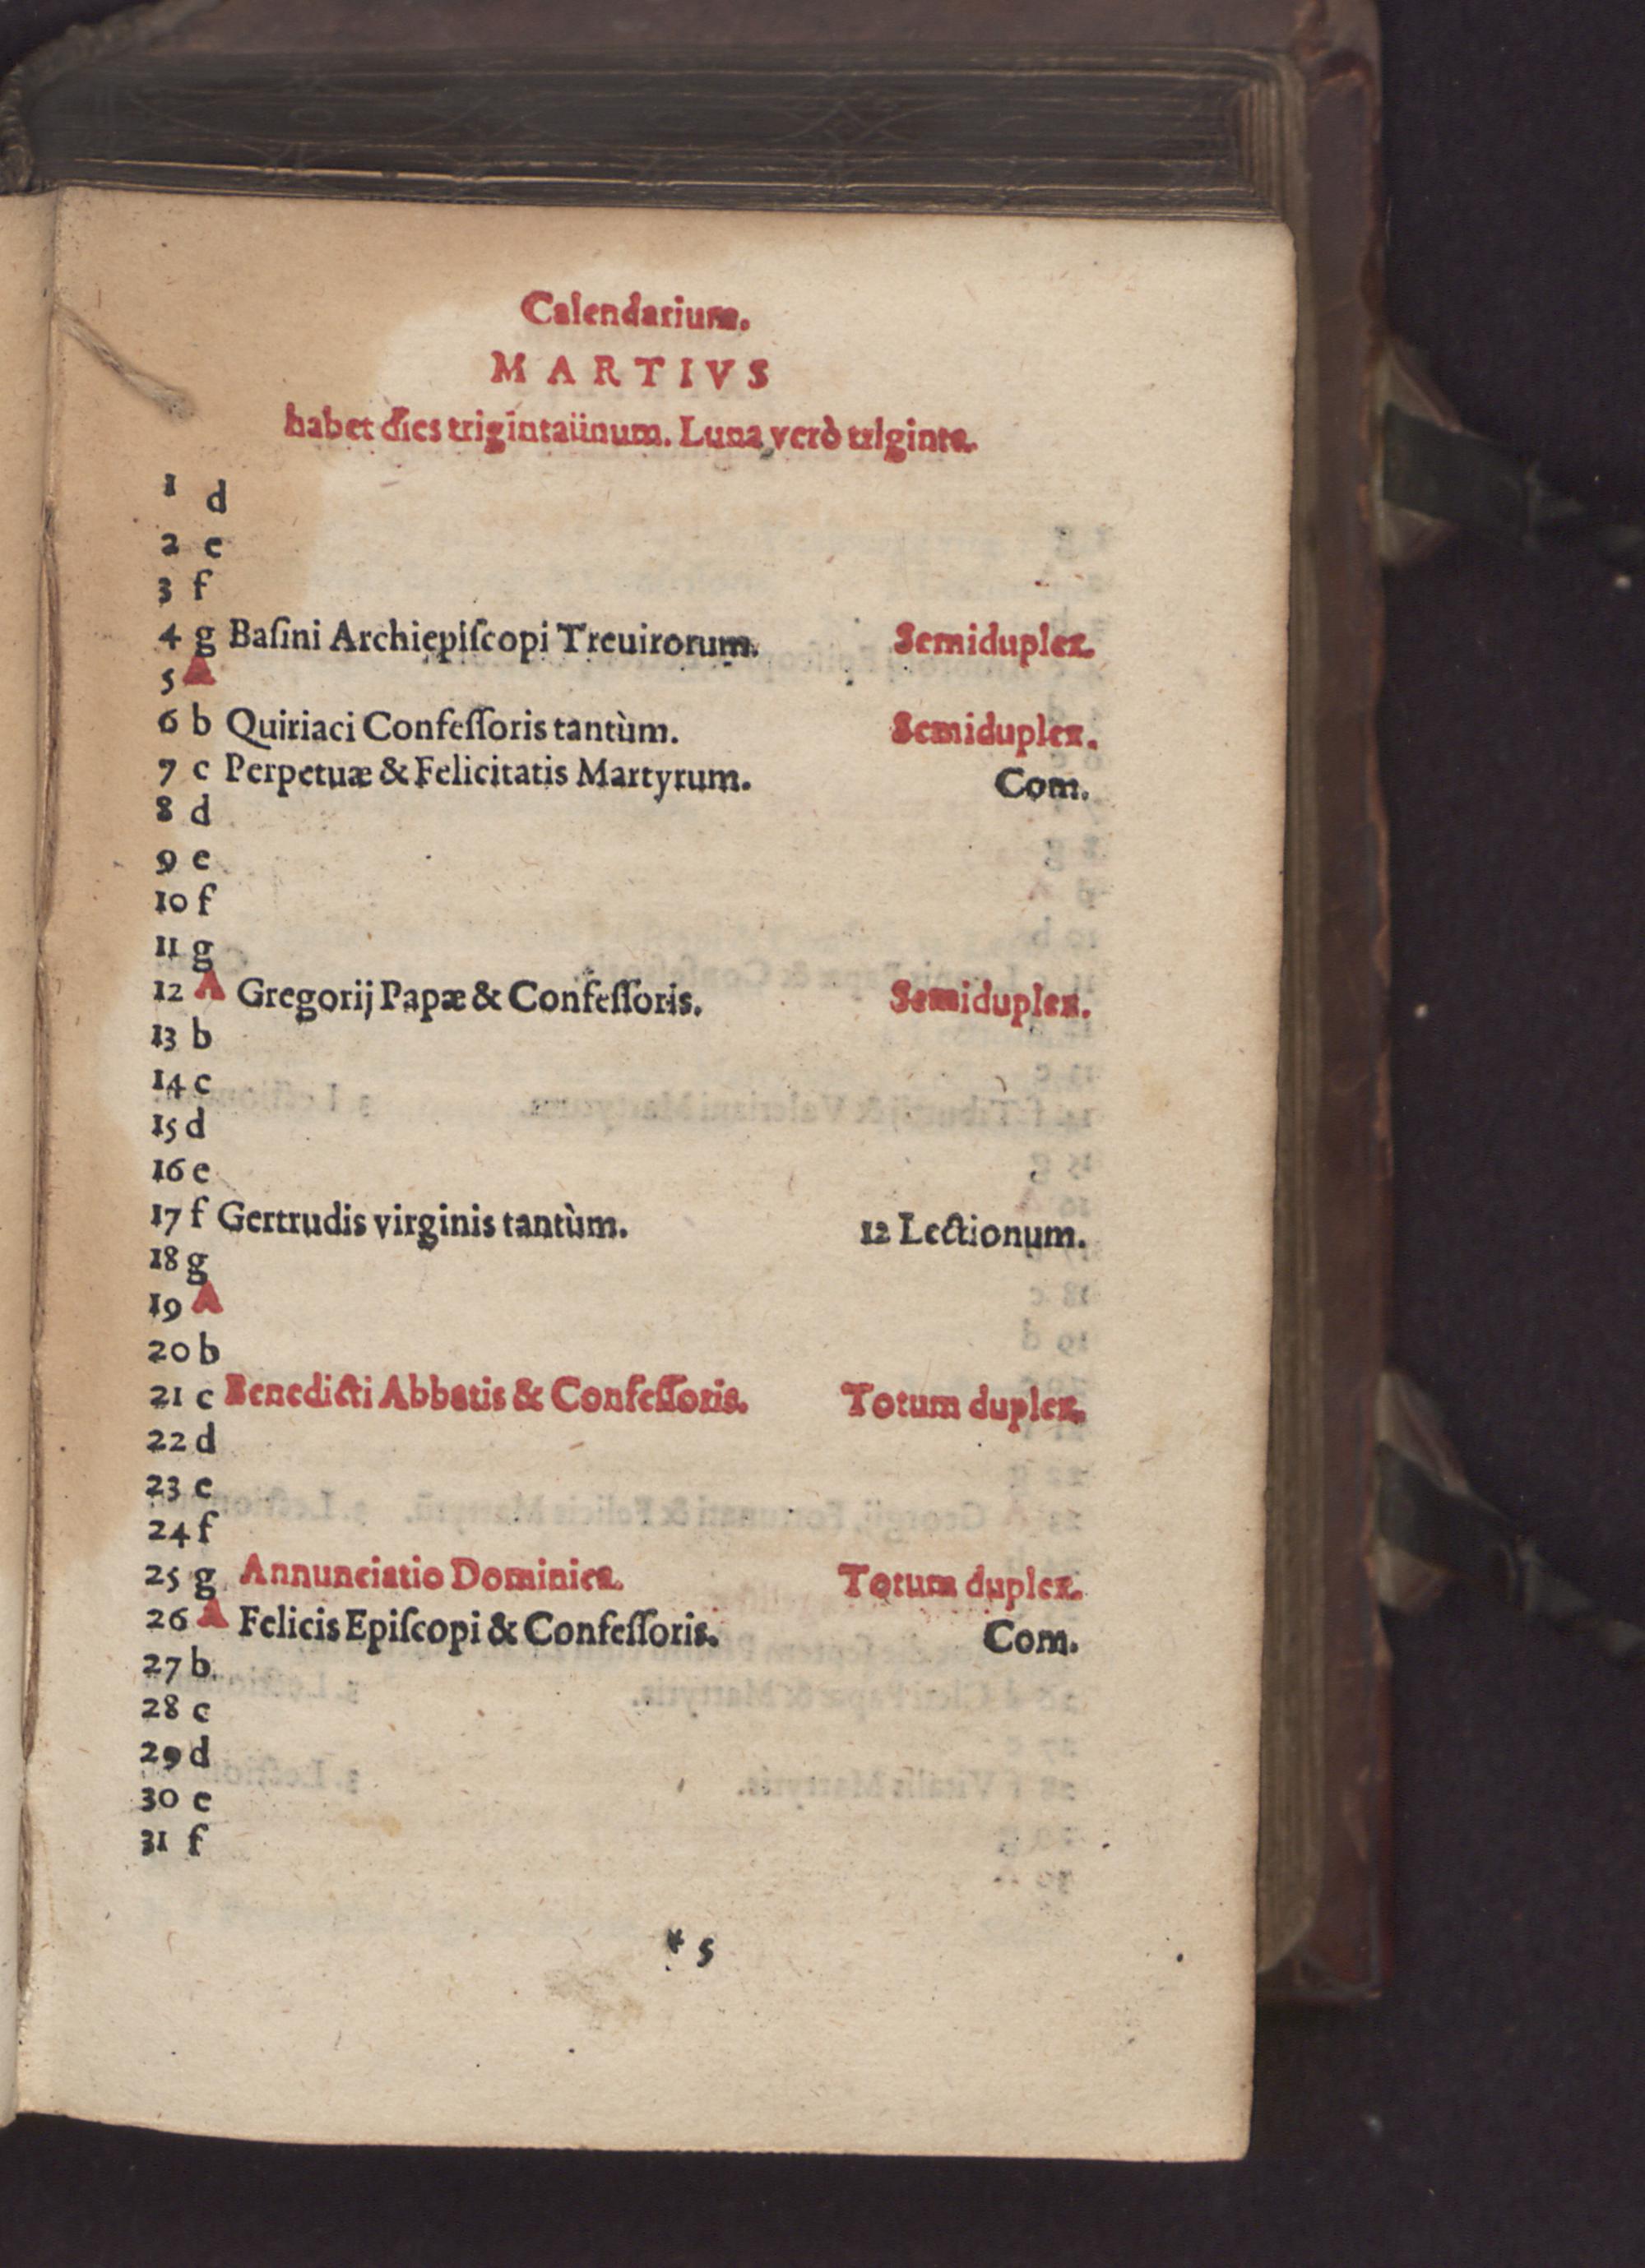 Calendarium.
MARTIVS
habet dies trigintaiinum. Luna verò triginta.
1 d
2 e
3 f
4 g Baſini Archiepiſcopi Treuirorum. Semiduplex.
5 A
6 b Quiriaci Confeſſoris tantùm. Semiduplex.
7 c Perpetuæ & Felicitatis Martyrum. Com.
8 d
9 e
10 f
11 g
12 A Gregorij Papæ & Confeſſoris. Semiduplex.
13 b
14 c
15 d
16 e
17 f Gertrudis virginis tantùm. 12 Lectionum.
18 g
19 A
20 b
21 c Benedicti Abbatis & Confeſſoris. Totum duplex.
22 d
23 e
24 f
25 g Annunciatio Dominica. Totum duplex.
26 A Felicis Epiſcopi & Confeſſoris. Com.
27 b
28 c
29 d
30 e
31 f
* 5